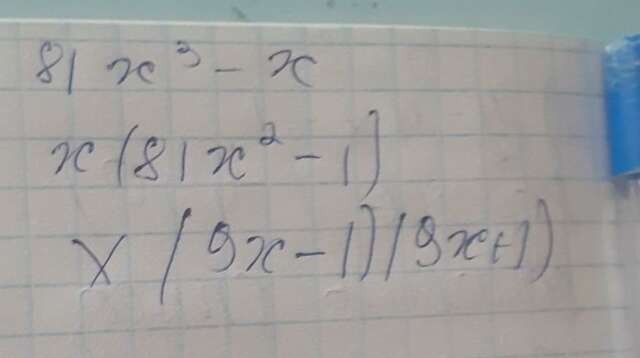 81 x³ - x
x(81x² - 1)
x(9x - 1)(9x+1)